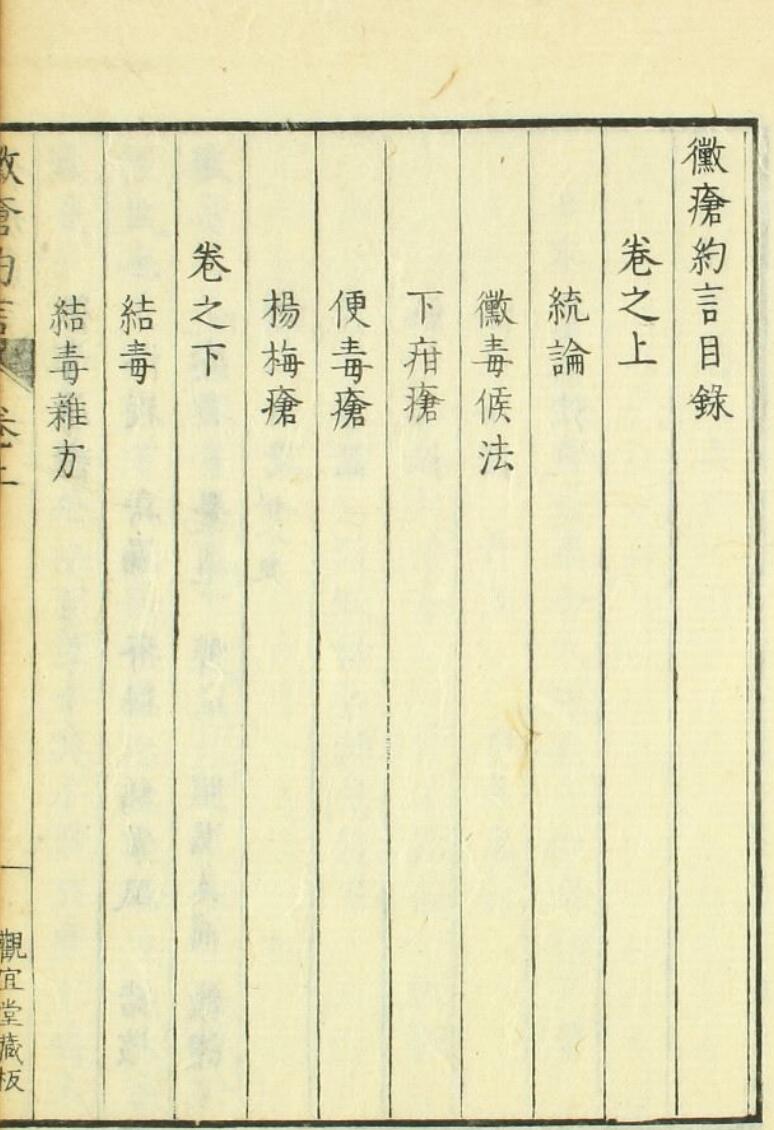 黴瘡約言目錄
卷之上
統論
黴毒候法
下疳瘡
便毒瘡
楊梅瘡
卷之下
結毒
結毒雜方
黴瘡約言
卷上
觀宜堂藏板